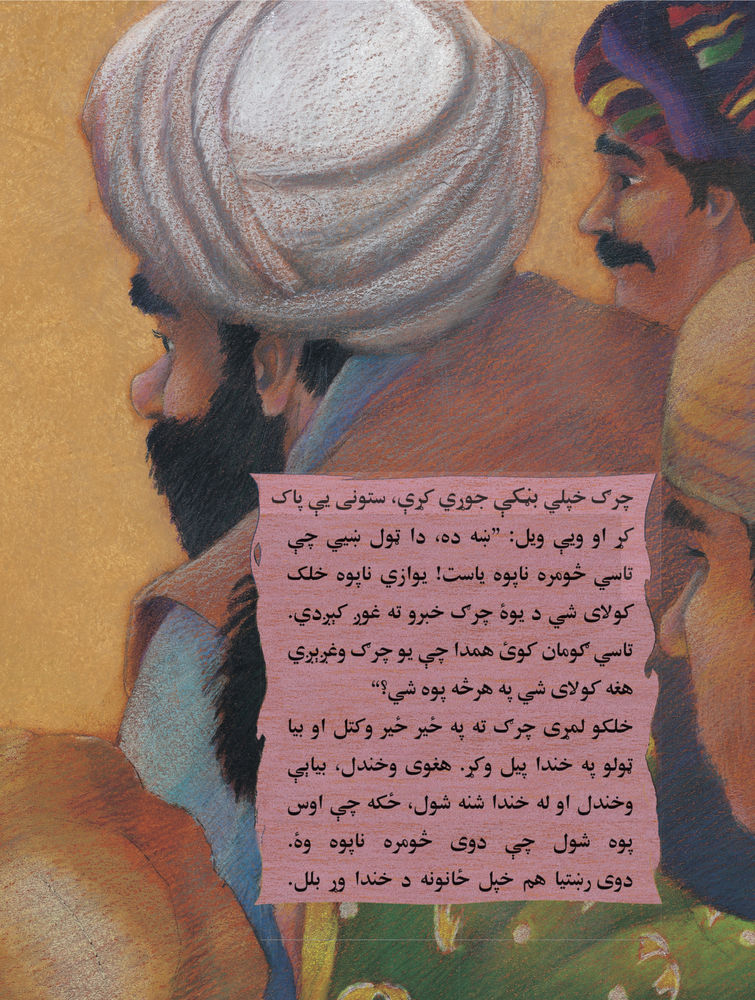 چرګ خپلې بڼکې جوړې کړې، ستونی یې پاک
کړ او ویې ویل: ”ښه ده، دا ټول ښیي چې
تاسې څومره ناپوه یاست! یوازې ناپوه خلک
کولای شي د یوۀ چرګ خبرو ته غوږ کېږدي.
تاسې ګومان کوئ همدا چې یو چرګ وغږېږي
هغه کولای شي په هرڅه پوه شي؟“
خلکو لمړی چرګ ته په ځیر ځیر وکتل او بیا
ټولو په خندا پیل وکړ. هغوی وخندل، بیایې
وخندل او له خندا شنه شول، ځکه چې اوس
پوه شول چې دوی څومره ناپوه وۀ.
دوی رښتیا هم خپل ځانونه د خندا وړ بلل.